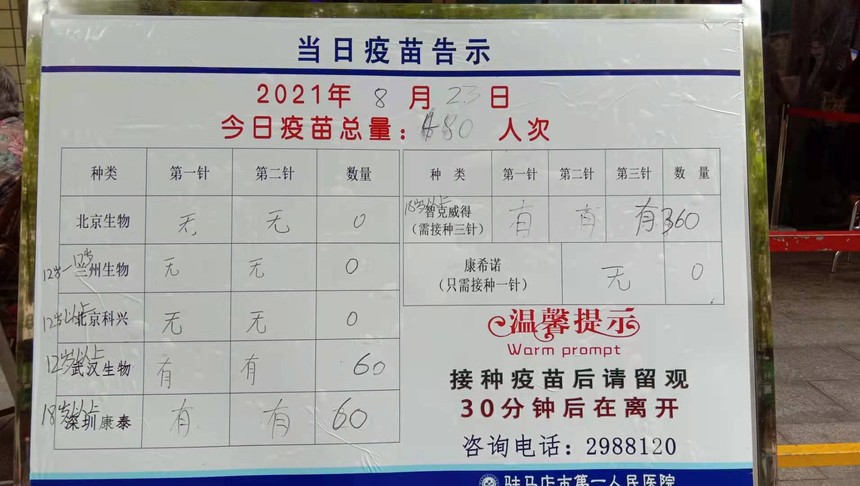 当日疫苗告示
2021年 8 月 23 日
今日疫苗总量：480 人次
种类 第一针 第二针 数量
北京生物 无 无 0
12岁—17岁 兰州生物 无 无 0
12岁以上 北京科兴 无 无 0
12岁以上 武汉生物 有 有 60
18岁以上 深圳康泰 有 有 60
种类 第一针 第二针 第三针 数量
18岁以上 智克威得 有 有 有 360
（需接种三针）
康希诺 无 0
（只需接种一针）
温馨提示
Warm prompt
接种疫苗后请留观
30分钟后在离开
咨询电话：2988120
驻马店市第一人民医院